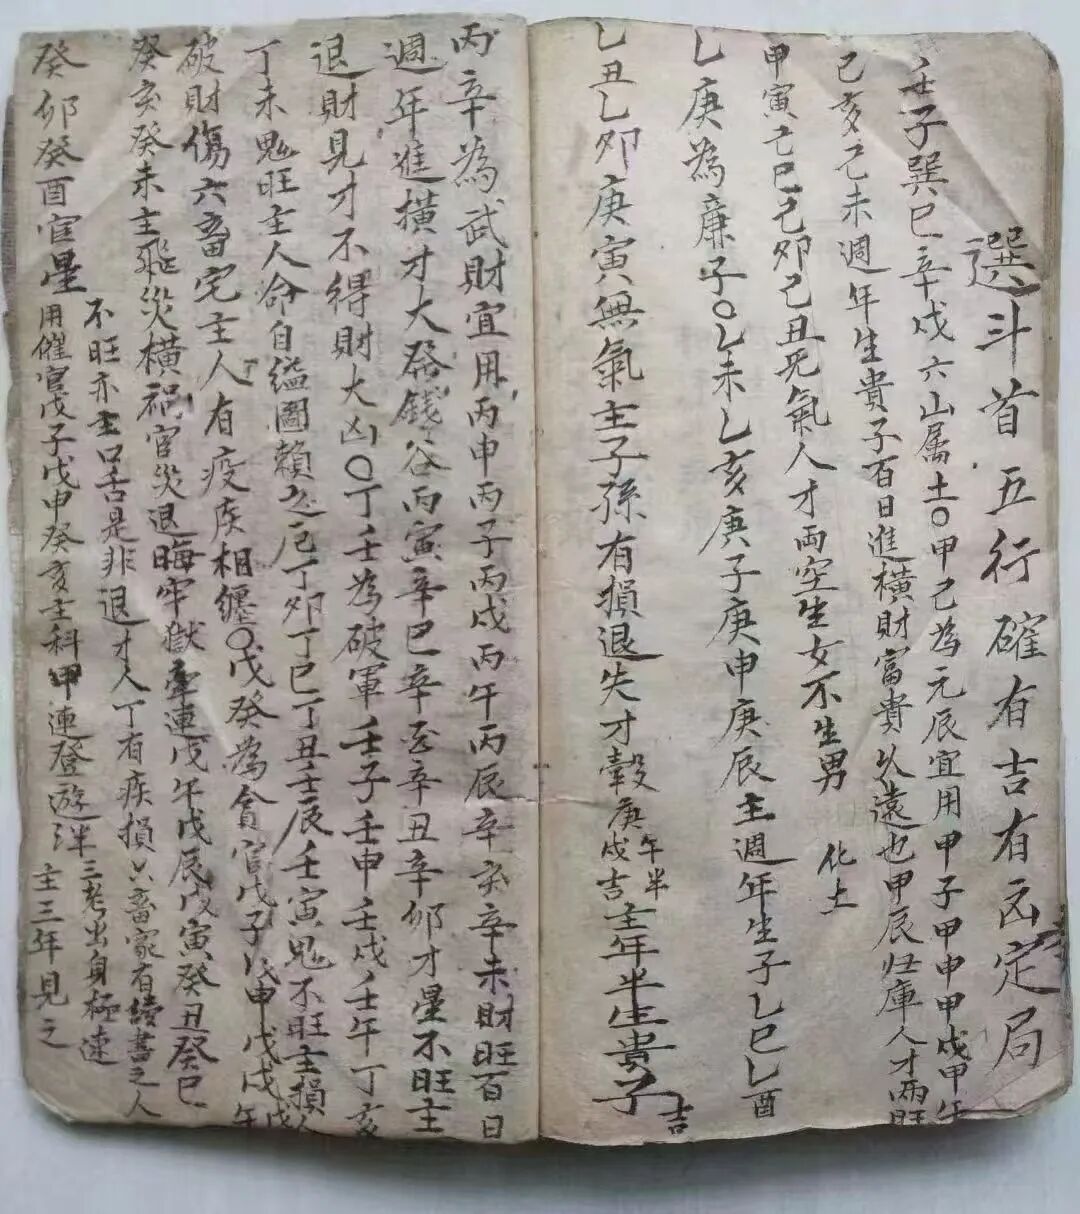 選斗首五行確有吉有凶定局
壬子巽巳辛戌六山属土〇甲己為元辰宜用甲子甲申甲戌甲午
己亥己未週年生貴子百日進橫財富貴久遠也甲辰归庫人才兩旺
甲寅己巳己卯己丑死氣人才兩空生女不生男 化土
乚庚為廉子〇乚未乚亥庚子庚申庚辰主週年生子乚巳乚酉
乚丑乚卯庚寅無氣主子孫有損退失才穀庚戌吉午半主年半生貴子吉
丙辛為武財宜用丙申丙子丙戌丙午丙辰辛亥辛未財旺百日
週年進橫才大發錢谷丙寅辛巳辛酉辛丑辛卯才星不旺主
退財見才不得財大凶〇丁壬為破軍壬子壬申壬戌壬午丁亥
丁未鬼旺主人命自缢圖賴之厄丁卯丁巳丁丑壬辰壬寅鬼不旺主損人
破財傷六畜宅主人有疫疾相纏〇戊癸為貪官戊子戊申戊戌
癸亥癸未主飛災橫禍官災退晦牢獄牽連戊午戊辰戊寅癸丑癸巳
不旺亦主口舌是非退才人丁有疾損六畜家有續書之人
癸卯癸酉官星用催官戊子戊申癸亥主科甲連登遊泮三考出身極速
主三年見之